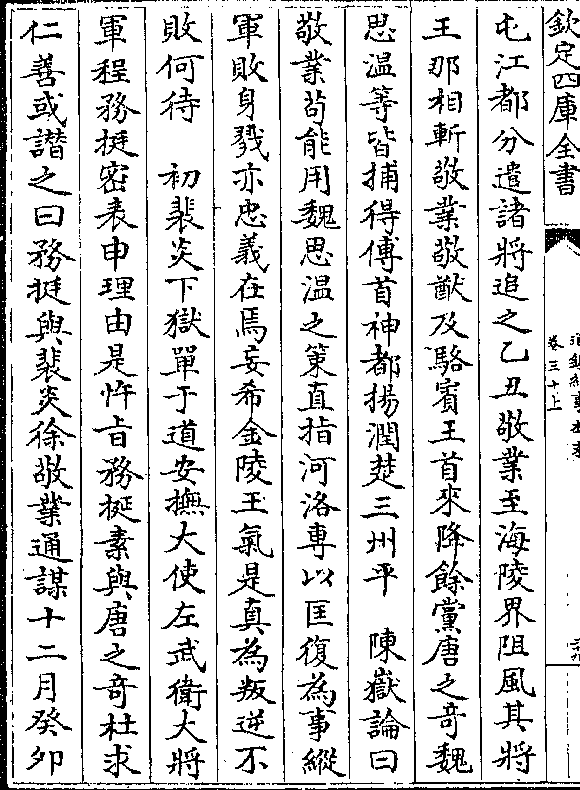 欽定四庫全書
卷三十上
屯江都分遣諸將追之乙丑敬業至海陵界阻風其將
王那相斬敬業敬猷及駱賓王首來降餘黨唐之奇魏
思温等皆捕得傳首神都揚潤楚三州平　陳嶽論曰
敬業茍能用魏思温之策直指河洛專以匡復為事縱
軍敗身戮亦忠義在焉妄希金陵王氣是真為叛逆不
敗何待　初裴炎下獄單于道安撫大使左武衛大將
軍程務挺密表申理由是忤旨務挺素與唐之奇杜求
仁善或譖之曰務挺與裴炎徐敬業通謀十二月癸卯